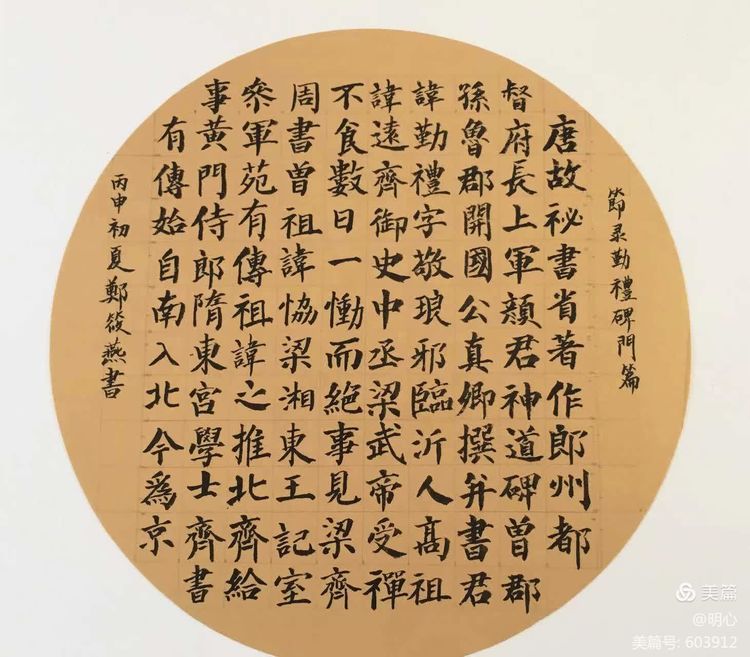 節录勤禮碑門篇
唐故祕書省著作郎州都
督府長上軍顏君神道碑曾郡
孫魯郡開國公真卿撰并書君
諱勤禮字敬琅邪臨沂人髙祖
諱遠齊御史中丞梁武帝受禪
不食數日一慟而絕事見梁齊
周書曾祖諱恊梁湘東王記室
叅軍苑有傳祖諱之推北齊給
事黃門侍郎隋東宮學士齊書
有傳始自南入北今爲京
丙申初夏鄭筱燕書
美篇
@明心
美篇号: 603912